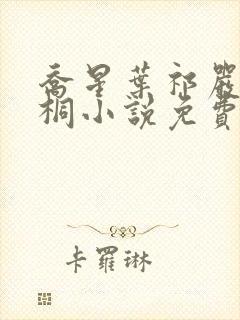 喬星葉祁嚴
桐小說免費
卡羅琳